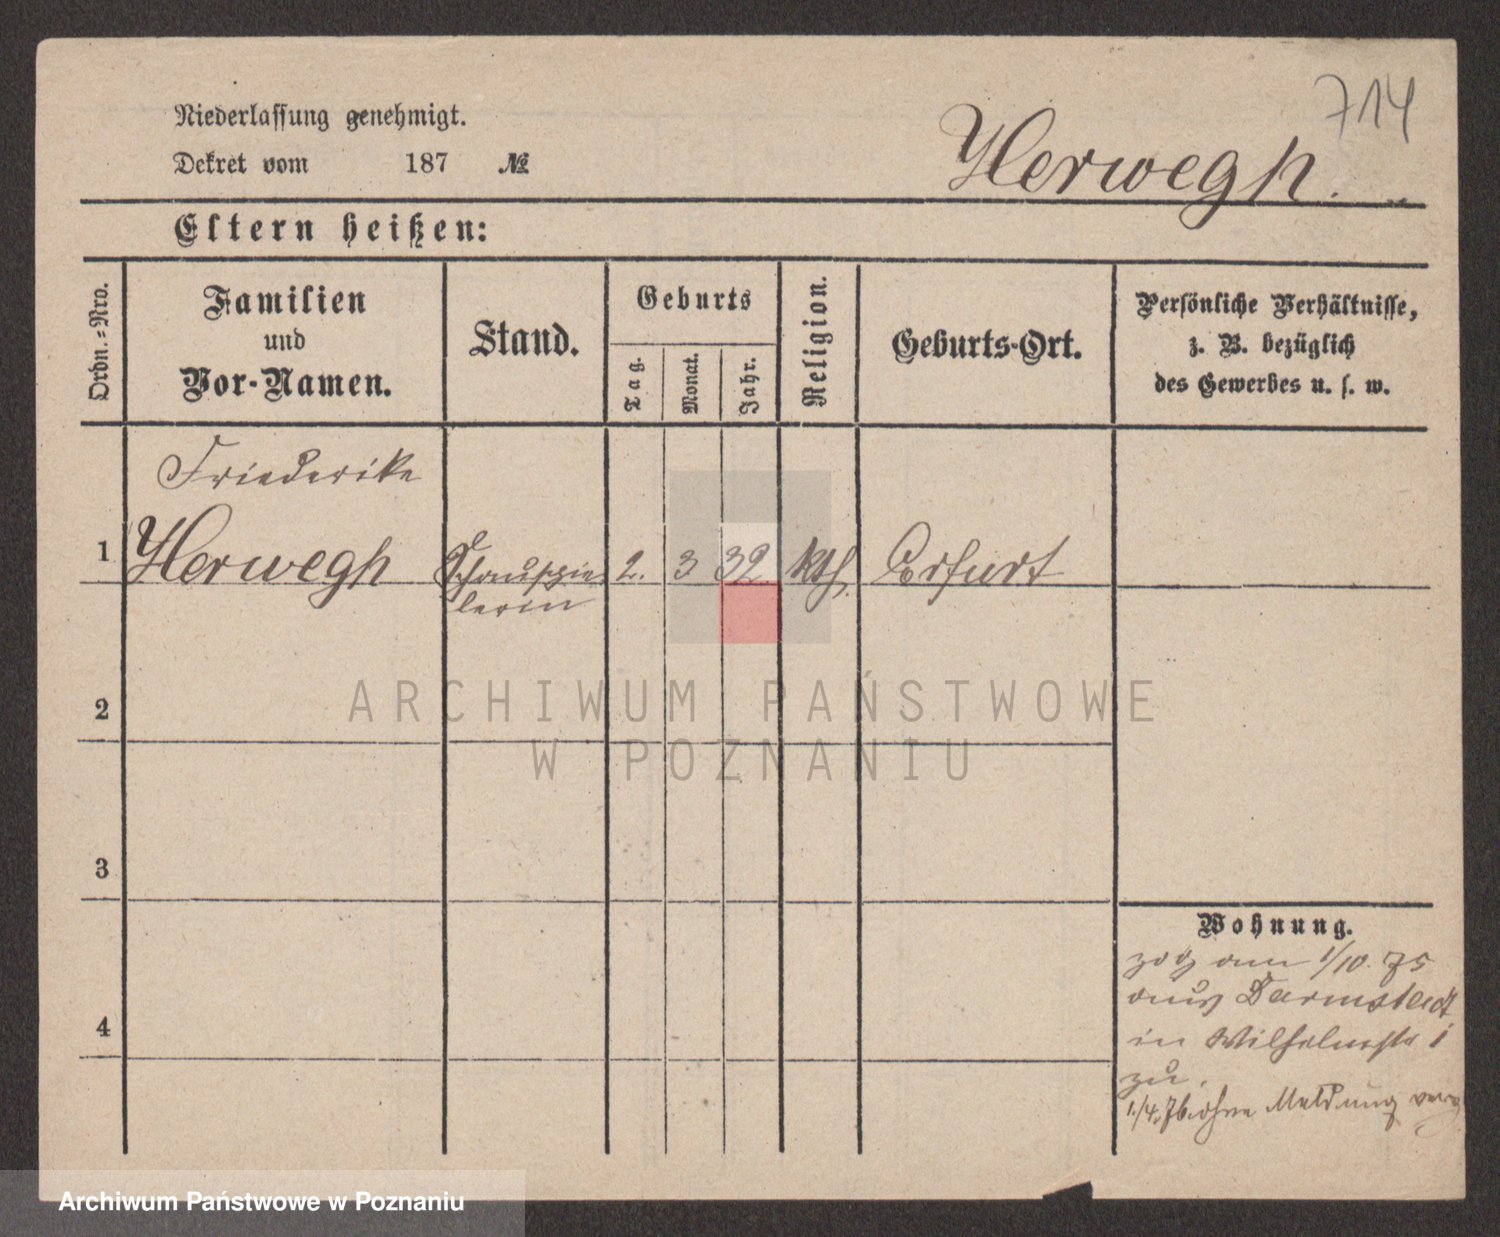 714
Niederlassung genehmigt.
Dekret vom 187 №
Herwegh.
Eltern heißen:
Ordn.-Nro.
Familien
und
Vor-Namen.
Stand.
Geburts
Tag.
Monat.
Jahr.
Religion.
Geburts-Ort.
Persönliche Verhältnisse,
z. B. bezüglich
des Gewerbes u. s. w.
Friederike
1 Herwegh Schauspie 2. 3 32 kth. Erfurt
lerin
2
3
4
Wohnung.
zog am 1/10. 75
aus Darmstadt
in Wilhelmstr 1
zu.
1./4. 76 ohne Meldung
ARCHIWUM PAŃSTWOWE
W POZNANIU
Archiwum Państwowe w Poznaniu